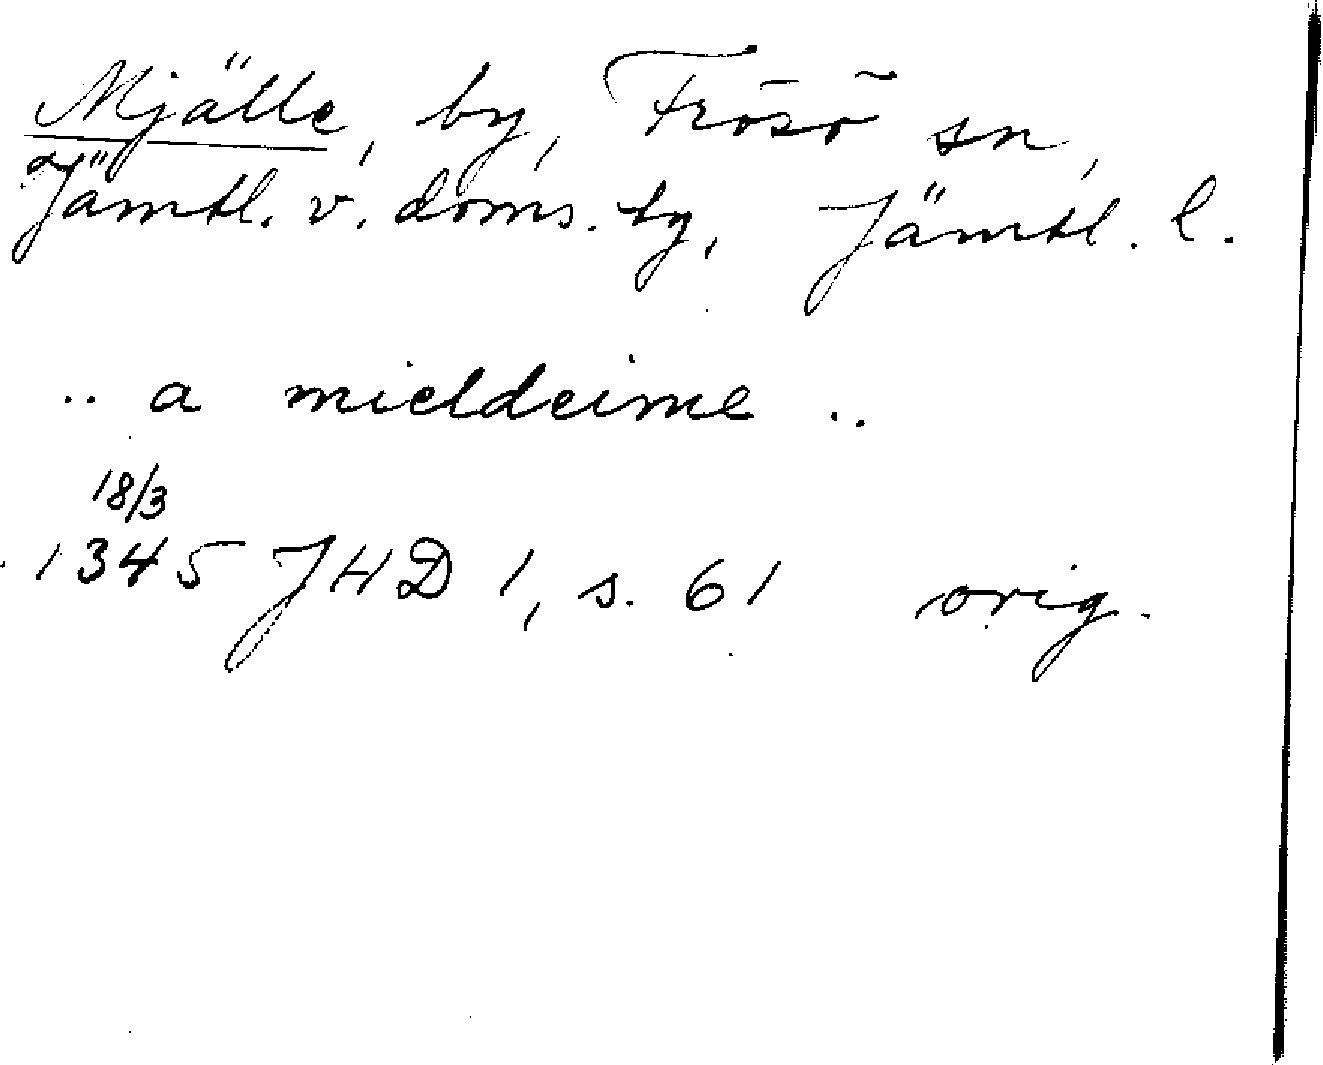 Mjälle, by, Frösö sn,
Jämtl. v. doms. tg, Jämtl. l.
.. a mieldeime ..
18/3
1345 JHD 1, s. 61 orig.